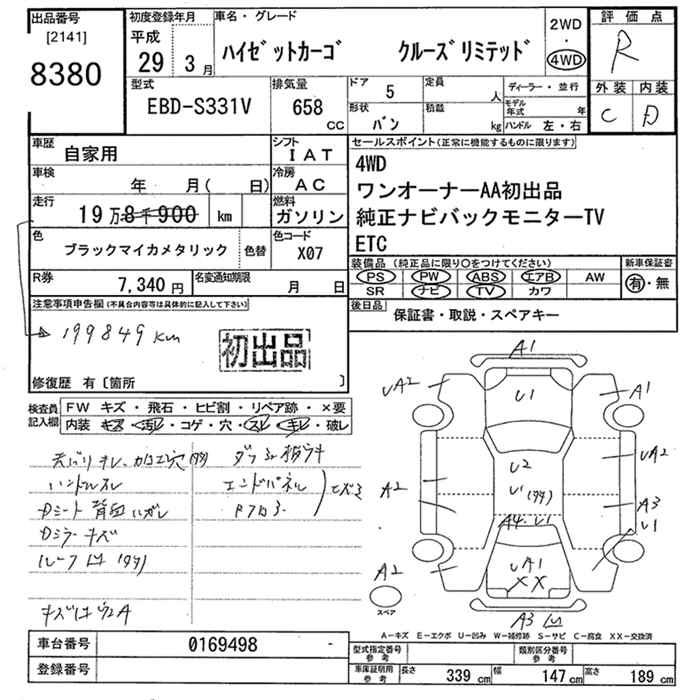 出品番号
[2141]
8380
初度登録年月
平成
29 3月
車名・グレード
ハイゼットカーゴ クルーズリミテッド
2WD
・
4WD
評価点
R
外装 内装
C D
型式
EBD-S331V
排気量
658
CC
ドア
5
定員
人
形状
バン
積載
kg
ディーラー・並行
モデル年式
年
ハンドル 左・右
車歴
自家用
シフト
IAT
車検
年 月( 日)
冷房
AC
走行
19万8千900 km
燃料
ガソリン
色
ブラックマイカメタリック
色替
色コード
X07
R券
7,340円
名変通知期限
月 日
セールスポイント(正常に機能するものに限ります)
4WD
ワンオーナーAA初出品
純正ナビバックモニターTV
ETC
装備品(純正品に限り○をつけてください)
新車保証書
PS PW ABS エアB AW
有・無
SR ナビ TV カワ
後日品
保証書・取説・スペアキー
注意事項申告欄(不具合内容等は具体的に記入して下さい)
199849km
初出品
修復歴 有〔箇所 〕
検査員記入欄
FW キズ・飛石・ヒビ割・リペア跡・×要
内装 キズ・汚レ・コゲ・穴・スレ・キレ・破レ
ハンドルスレ
エンドパネル
Dシート背面ハガレ
Dミラーキズ
A1
UA2
U1
A1
UA2
U2
U1
A2
A3
U1
A4.U1
UA1
XX
A2
スペア
A3
A-キズ E-エクボ U-凹み W-補修跡 S-サビ C-腐食 XX-交換済
車台番号
0169498 -
登録番号
型式指定番号
参考
類別区分番号
参考
車庫証明用
参考
長さ 339cm 幅 147cm 高さ 189cm